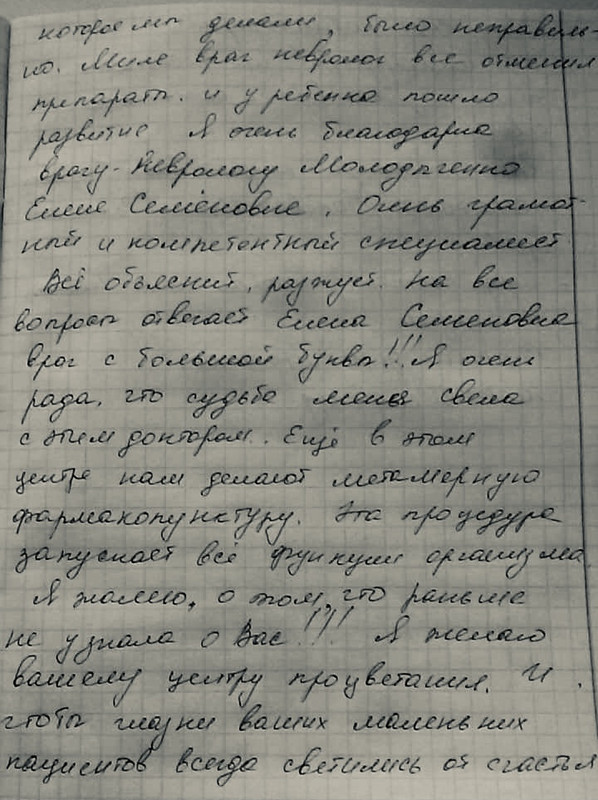 которое мы делали, было неправиль-
но. Милее врач невролог все отменил
препараты. и у ребенка пошло
развитие Я очень благодарна
врачу-Неврологу Молодыченко
Елене Семёновне. Очень грамот-
ный и компетентный специалист
Всё объяснит, разжует. На все
вопросы отвечает Елена Семеновна
врач с большой буквы!!! Я очень
рада, что судьба меня свела
с этим доктором. Ещё в этом
центре нам делают метамерную
фармакопунктуру. Эта процедура
запускает все функции организма
Я жалею, о том, что раньше
не узнала о Вас!!! Я желаю
вашему центру процветания. И
чтобы глазки ваших маленьких
пациентов всегда светились от счастья